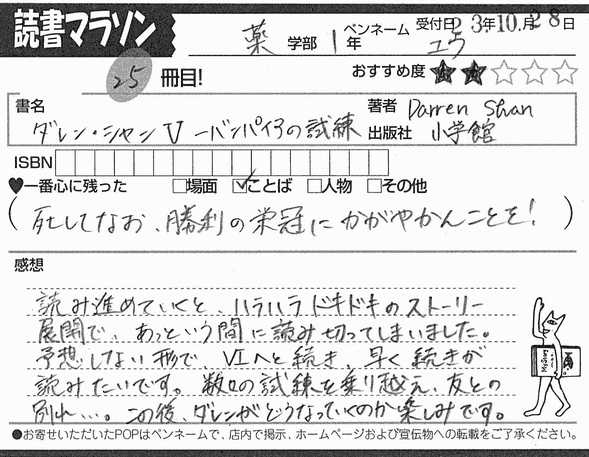 読書マラソン
薬 学部 1 年 ペンネーム ユウ 受付日 23年10月28日
25 冊目! おすすめ度 ★★☆☆☆
書名 ダレン・シャンⅤ ーバンパイアの試練 著者 Darren Shan
出版社 小学館
ISBN
♥一番心に残った □場面 ☑ことば □人物 □その他
(死してなお、勝利の栄冠にかがやかんことを!)
感想
読み進めていくと、ハラハラドキドキのストーリー
展開で、あっという間に読み切ってしまいました。
予想しない形で Ⅵへと続き、早く続きが
読みたいです。数々の試練を乗り越え、友との
別れ…。この後、ダレンがどうなっていくのか楽しみです。
●お寄せいただいたPOPはペンネームで、店内で掲示、ホームページおよび宣伝物への転載をご了承ください。